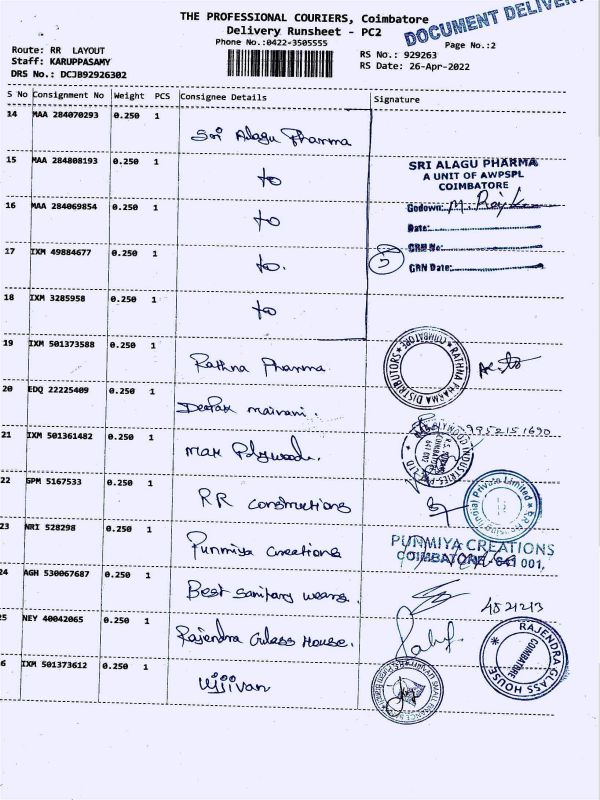 THE PROFESSIONAL COURIERS, Coimbatore
Delivery Runsheet - PC2
DOCUMENT DELIVERY
Phone No.:0422-3505555
Page No.:2
Route: RR LAYOUT
Staff: KARUPPASAMY
DRS No.: DCJB92926302
RS No.: 929263
RS Date: 26-Apr-2022
S No Consignment No Weight PCS Consignee Details Signature
14 MAA 284070293 0.250 1 Sri Alagu Pharma
15 MAA 284808193 0.250 1 to
SRI ALAGU PHARMA
A UNIT OF AWPSPL
COIMBATORE
16 MAA 284069854 0.250 1 to
Godown:
Date:
17 IXM 49884677 0.250 1 to.
GRN No:
5 GRN Date:
18 IXM 3285958 0.250 1 to
19 IXM 501373588 0.250 1 Rathna Pharma
RATHNA PHARMA DISTRIBUTORS COIMBATORE
20 EDQ 22225409 0.250 1 Deepak mairani.
9952151690
21 IXM 501361482 0.250 1 Mak Plywoods.
22 GPM 5167533 0.250 1 RR Constructions
Private Limited
23 NRI 528298 0.250 1 Punmiya Creations
PUNMIYA CREATIONS
COIMBATORE - 641 001.
24 AGH 530067687 0.250 1 Best Sanitary wears.
4521213
5 NEY 40042065 0.250 1 Rajendra Glass House.
RAJENDRA GLASS HOUSE COIMBATORE
6 IXM 501373612 0.250 1 Ujjivan